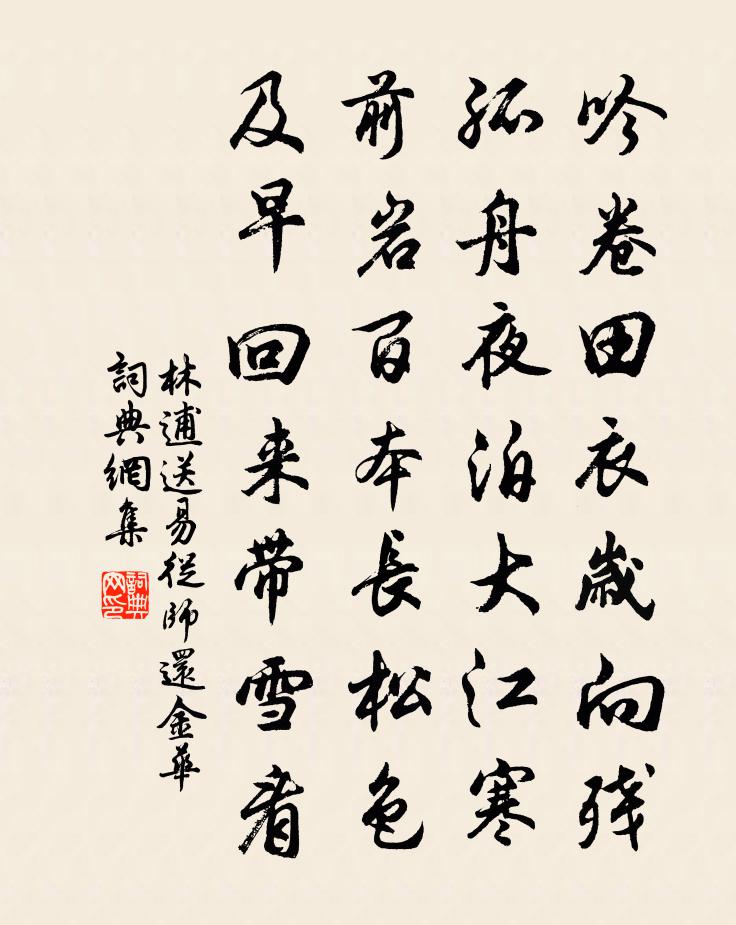 吟卷田衣歳向残
孤舟夜泊大江寒
前岩百本長松色
及早回来带雪看
林逋送易從師還金華
詞典網集
詞典网印